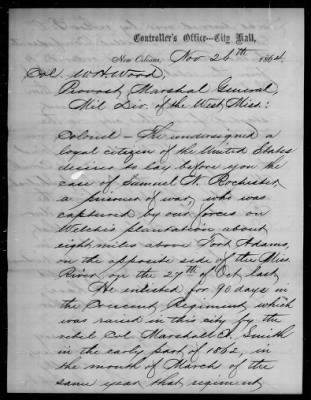 Controller's Office--City Hall,
New Orleans, Nov 26th 1864.
Col. W. H. Wood,
Provost Marshal General,
Mil Div. of the West Miss:
Colonel - The undersigned a
loyal citizen of the United States
desires to lay before you the
case of Samuel N. Rochester,
a prisoner of war, who was
captured by our forces on
Welch's plantation about
eight miles above Fort Adams,
on the opposite side of the Miss
River on the 27th of Oct last
He enlisted for 90 days in
the Crescent Regiment which
was raised in this city by the
rebel Col Marshall J. Smith
in the early part of 1862, in
the month of March of the
same year that regiment